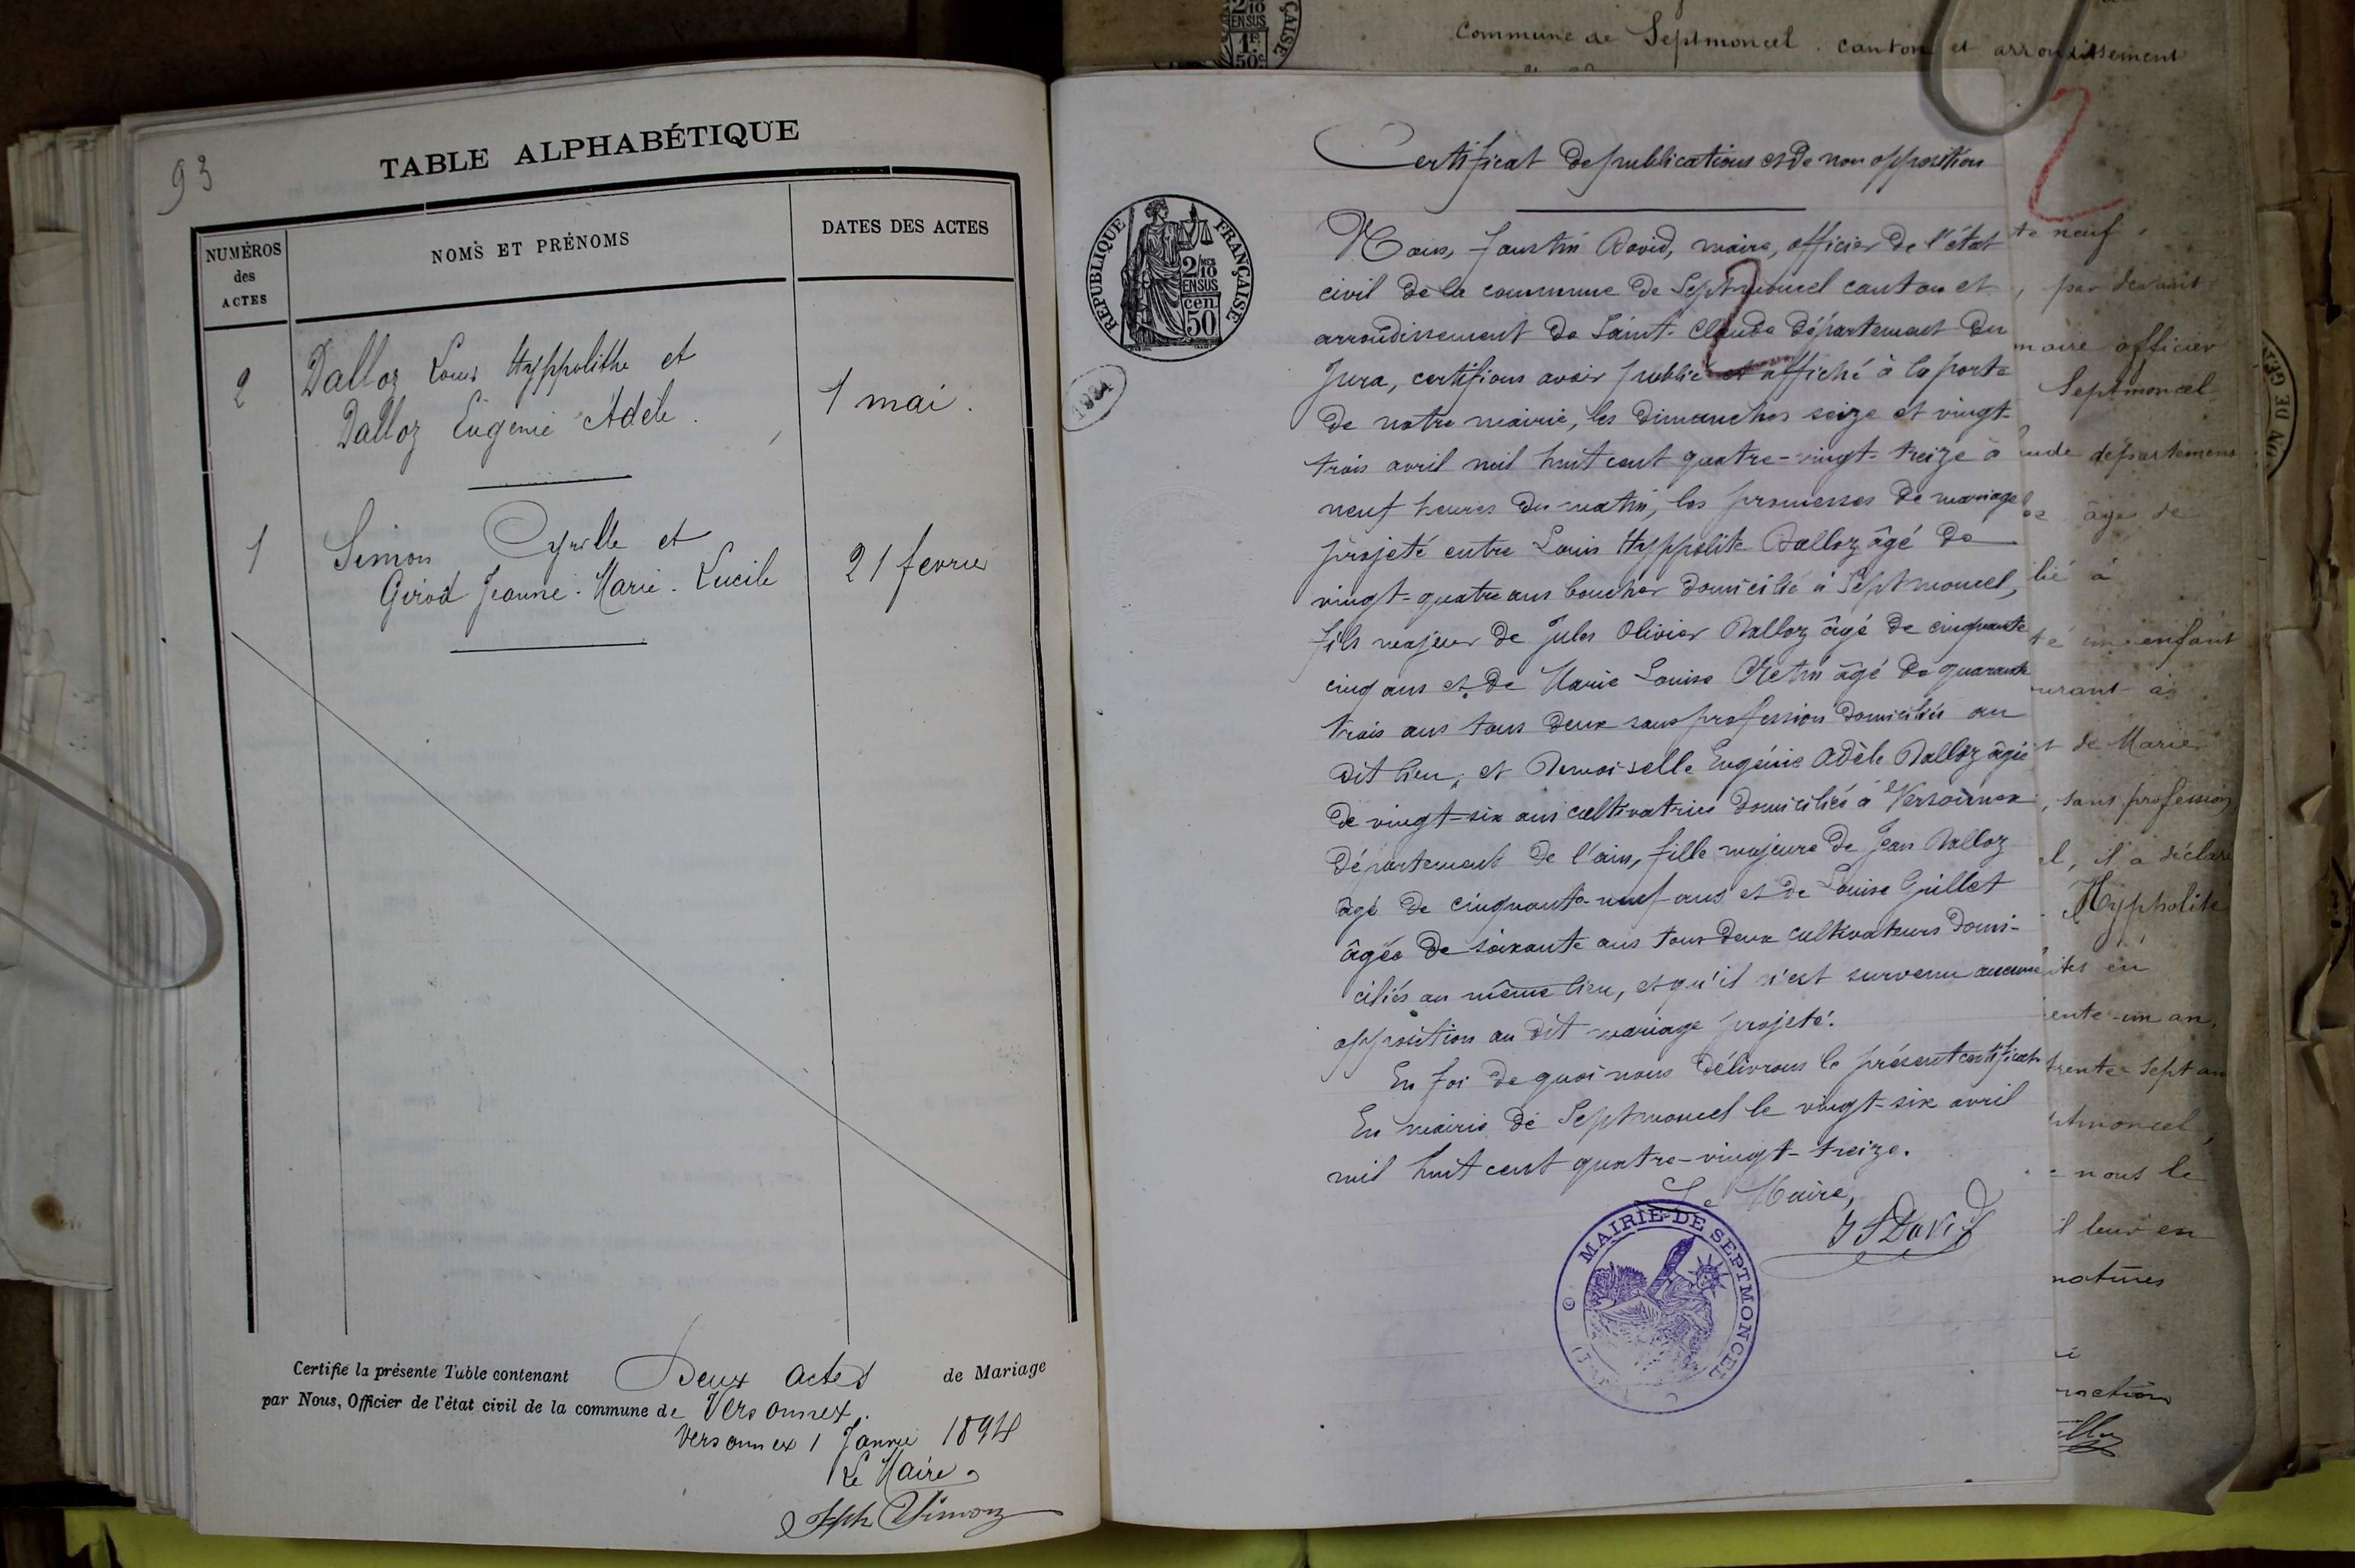 93
TABLE ALPHABÉTIQUE
NUMÉROS
des
ACTES
NOMS ET PRÉNOMS
DATES DES ACTES
2
Dalloz Louis Hyppolithe et
Dalloz Eugénie Adèle.
1 mai.
1
Simon Cyrille et
Girod Jeanne-Marie-Lucile
21 fevrier
Certifié la présente Table contenant Deux actes de Mariage
par Nous, Officier de l'état civil de la commune de Versonnex.
Versonnex 1 Janvier 1894
Le Maire
Simon
2/10
EN SUS
1F.
50c
ÇAISE
Commune de Septmoncel. canton et arrondissement
RÉPUBLIQUE FRANÇAISE
2/MES
10
EN SUS
cen.
50
Certificat de publications et de non opposition
Nous, Faustin David, maire, officier de l'état
civil de la commune de Septmoncel canton et
arrondissement de Saint-Claude département du
Jura, certifions avoir publié et affiché à la porte
de notre mairie, les dimanches seize et vingt-
trois avril mil huit cent quatre-vingt-treize à
neuf heures du matin, les promesses de mariage
projeté entre Louis Hyppolite Dalloz âgé de
vingt-quatre ans boucher domicilié à Septmoncel,
fils majeur de Jules Olivier Dalloz âgé de cinquante
cinq ans et de Marie Louise Chrétin âgé de quarante
trois ans tous deux sans profession domiciliés au
dit lieu; et Demoiselle Eugénie Adèle Dalloz âgée
de vingt-six ans cultivatrice domiciliée à Versonnex
département de l'ain, fille majeure de Jean Dalloz
âgé de cinquante-neuf ans et de Louise Grillet
âgée de soixante ans tous deux cultivateurs domi-
ciliés au même lieu, et qu'il n'est survenu aucune
opposition au dit mariage projeté.
En foi de quoi nous délivrons le présent certificat
En mairie de Septmoncel le vingt-six avril
mil huit cent quatre-vingt-treize.
Le Maire,
David
MAIRIE DE SEPTMONCEL
te neuf,
, par devant
maire officier
Septmoncel
ude département
âge de
lié à
té un enfant
t de Marie
, sans profession
el, il a déclaré
Hyppolite
ente-un an,
trente-sept an
tmoncel,
nous le
il leur en